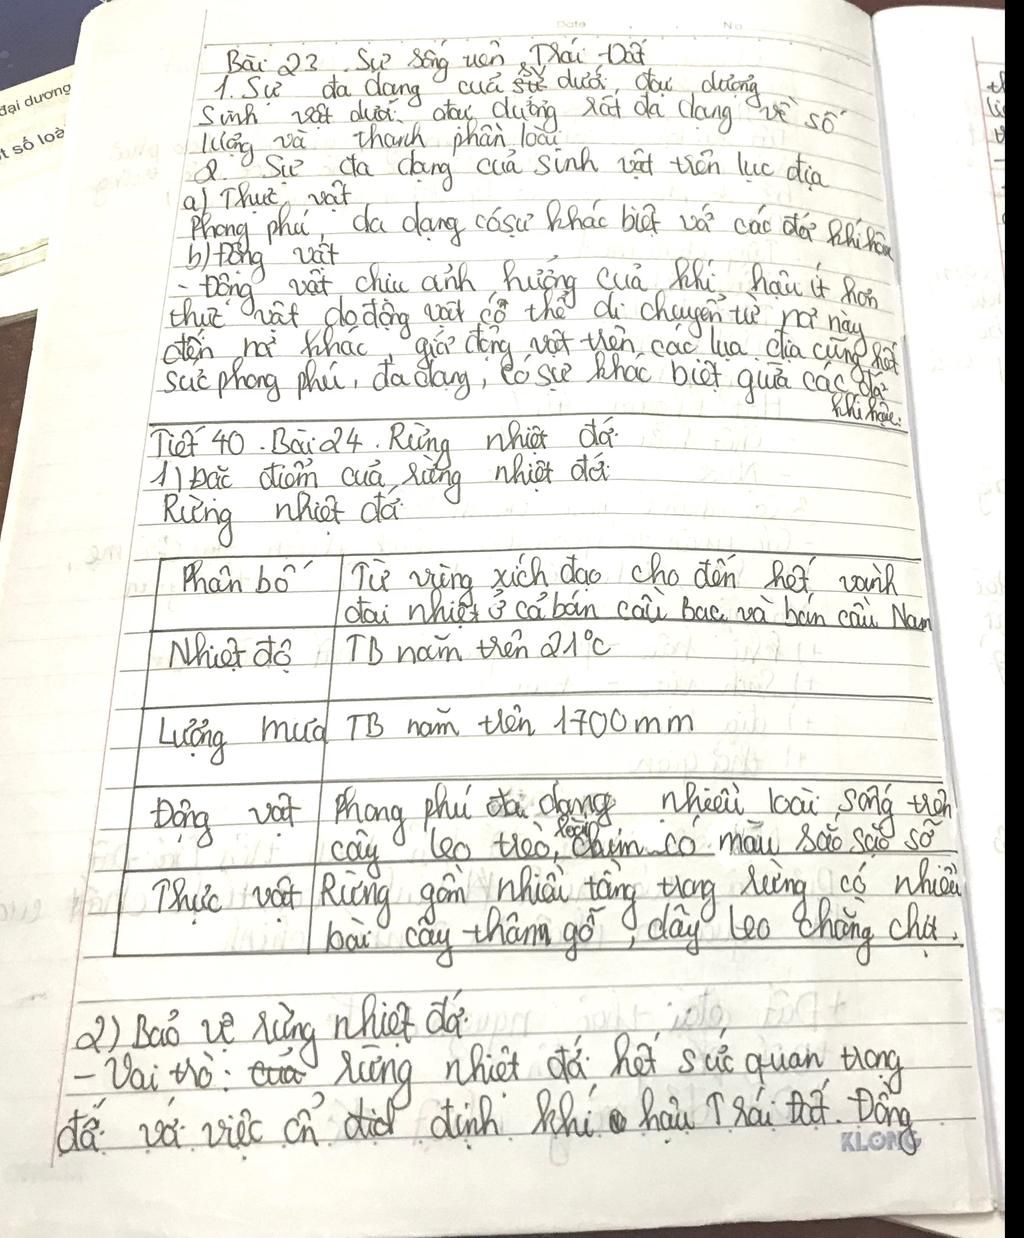 Date No
đại dương
t số loà
Bài 23. Sự sống trên Trái Đất
1. Sự đa dạng của SV dưới đại dương
Sinh vật dưới đại dương rất đa dạng về số
lượng và thành phần loài
2. Sự đa dạng của sinh vật trên lục địa
a) Thực vật
Phong phú, đa dạng có sự khác biệt và các đới khí hậu
b) Động vật
- Động vật chịu ảnh hưởng của khí hậu ít hơn
thực vật do động vật có thể di chuyển từ nơi này
đến nơi khác, giới động vật trên các lục địa cũng hết
sức phong phú, đa dạng, có sự khác biệt giữa các đới
khí hậu.
Tiết 40. Bài 24. Rừng nhiệt đới
1) Đặc điểm của rừng nhiệt đới
Rừng nhiệt đới
Phân bố Từ vùng xích đạo cho đến hết vành
đai nhiệt ở cả bán cầu Bắc và bán cầu Nam
Nhiệt độ TB năm trên 21°C
Lượng mưa TB năm trên 1700mm
Động vật Phong phú đa dạng nhiều loài sống trên
cây leo trèo, loài chim có màu sắc sặc sỡ
Thực vật Rừng gồm nhiều tầng trong rừng có nhiều
loài cây thâm gỗ, dây leo chằng chịt.
2) Bảo vệ rừng nhiệt đới
- Vai trò: của rừng nhiệt đới hết sức quan trong
đối với việc ổn địch định khí hậu Trái Đất. Đồng
KLONG